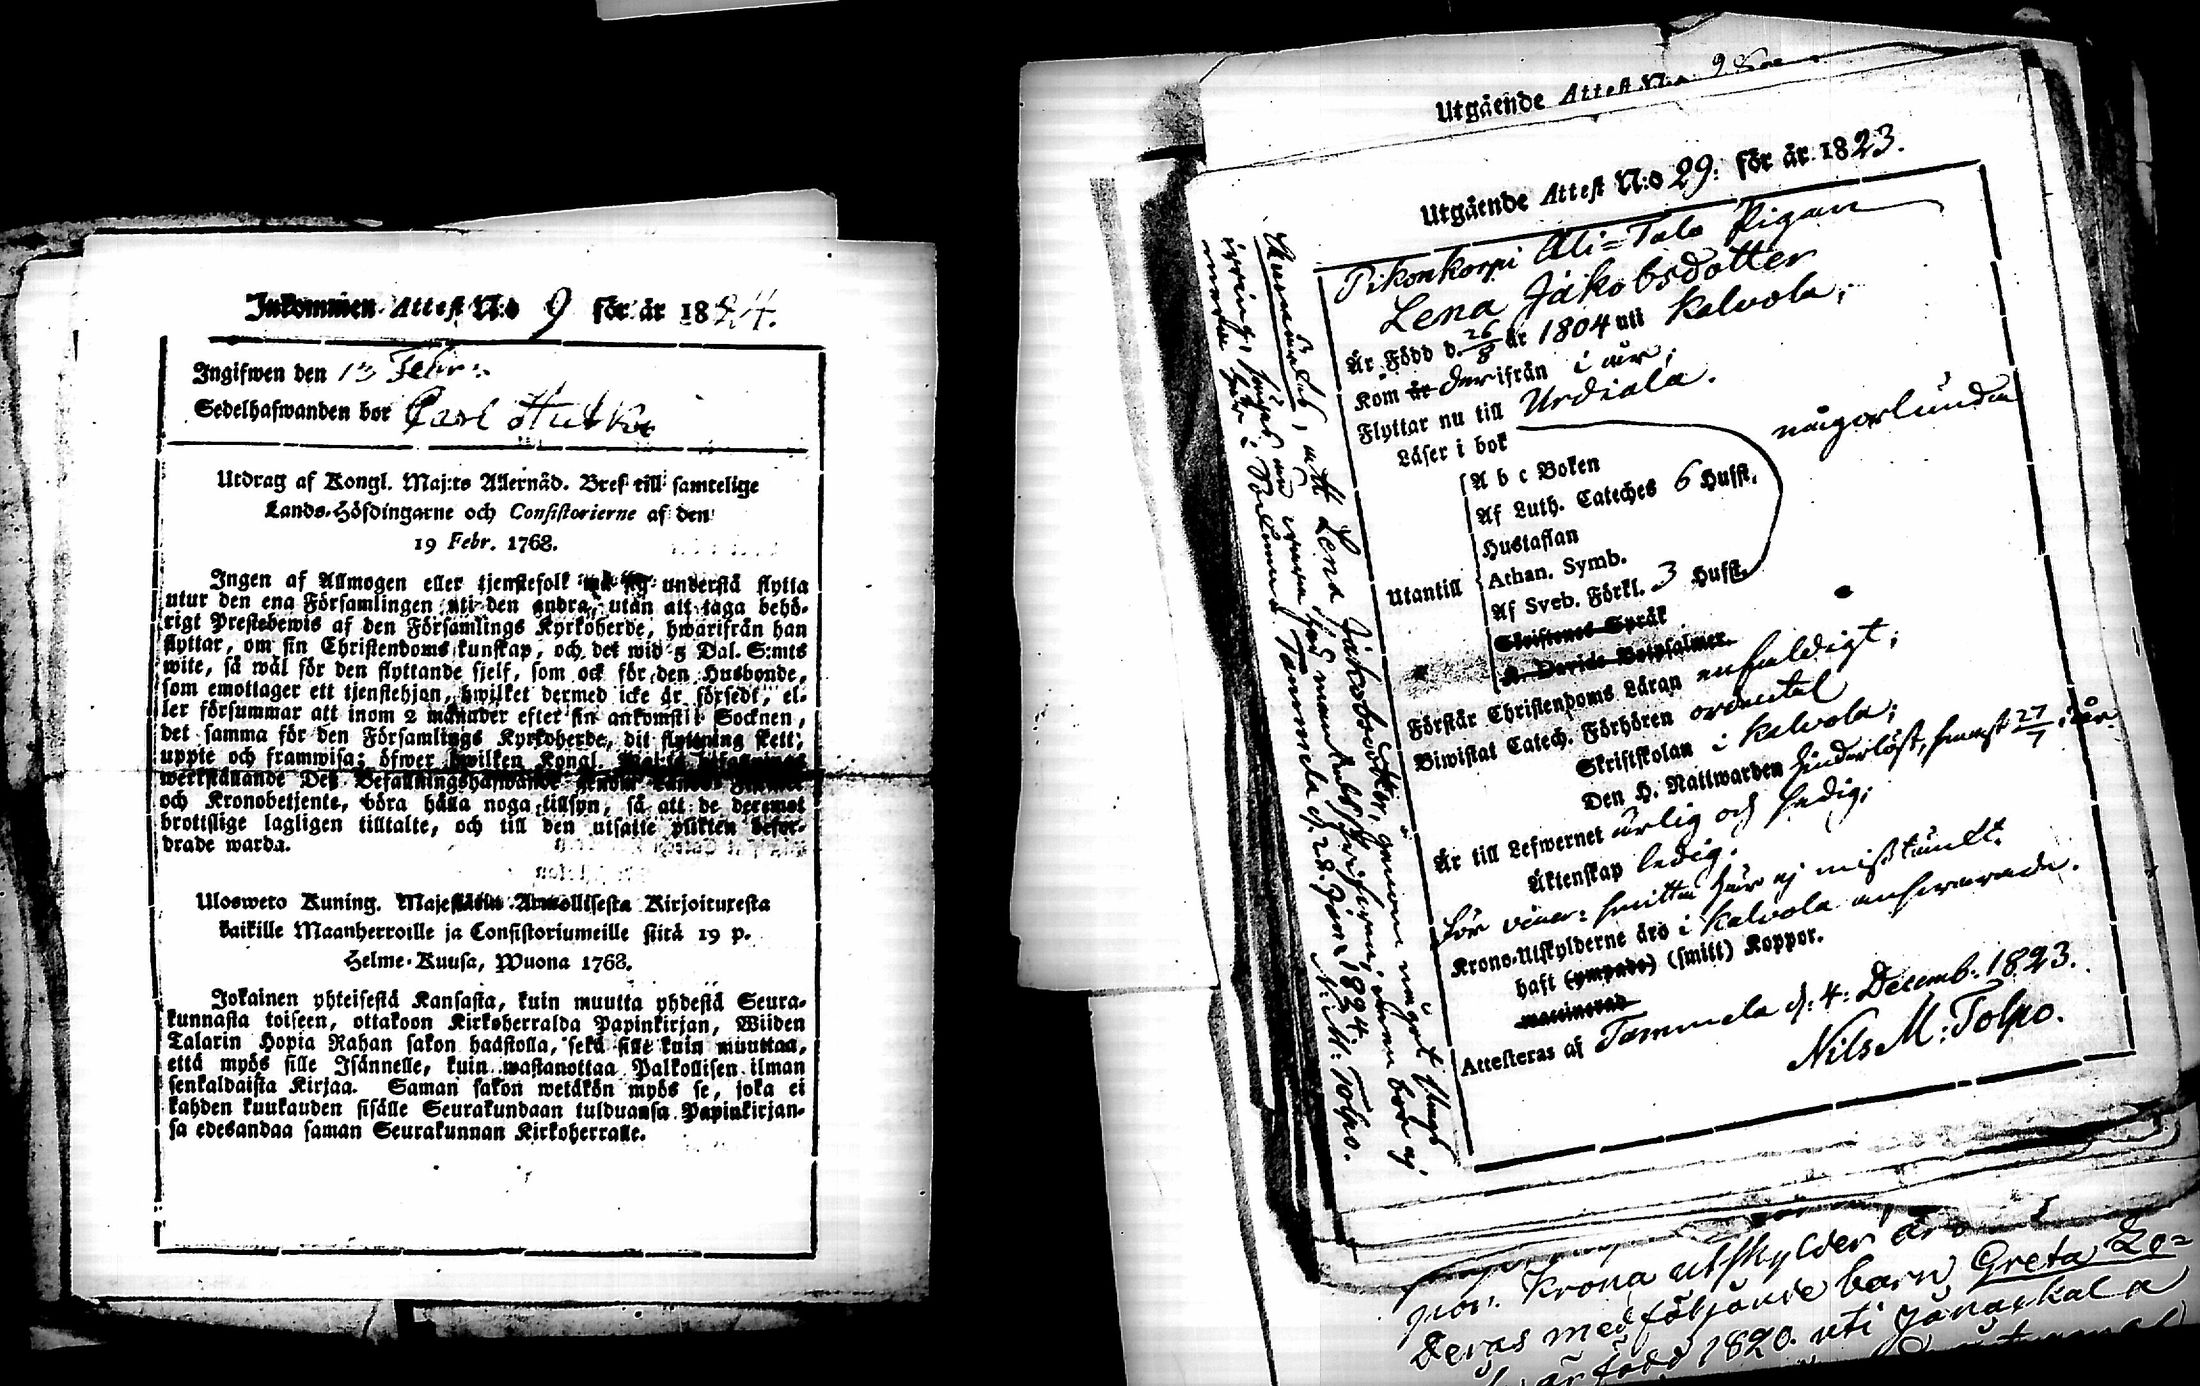 Inkommen Attest N:o 9 för år 1824.
Ingifwen den 13 Febr.
Sedelhafwanden bor Carl Hutka
Utdrag af Kongl. Maj:ts Allernåd. Bref till samtelige
Lands-Höfdingarne och Consistorierne af den
19 Febr. 1768.
Ingen af Allmogen eller tjenstefolk må sig understå flytta
utur den ena Församlingen uti den andra, utan att taga behö-
rigt Prestebewis af den Församlings Kyrkoherde, hwarifrån han
flyttar, om sin Christendoms kunskap, och det wid 5 Dal. S:mts
wite, så wäl för den flyttande sjelf, som ock för den Husbonde,
som emottager ett tjenstehjon, hwilket dermed icke är försedt, el-
ler försummar att inom 2 månader efter sin ankomst i Socknen,
det samma för den Församlings Kyrkoherde, dit flyttning skett,
uppte och framwisa; öfwer hwilken Kongl.
werkställande Des Befallningshafwande
och Kronobetjente, böra hålla noga tillsyn, så att de deremot
brottslige lagligen tilltalte, och till den utsatte plikten befor-
drade warda.
Ulosweto Kuning. Majestätin Armollisesta Kirjoituxesta
kaikille Maanherroille ja Consistoriumeille siitä 19 p.
Helme-Kuusa, Wuona 1768.
Jokainen yhteisestä Kansasta, kuin muutta yhdestä Seura-
kunnasta toiseen, ottakoon Kirkoherralda Papinkirjan, Wiiden
Talarin Hopia Rahan sakon haastolla, sekä sille kuin muuttaa,
että myös sille Isännelle, kuin wastanottaa Palkollisen ilman
senkaldaista Kirjaa. Saman sakon wetäkön myös se, joka ei
kahden kuukauden sisälle Seurakundaan tulduansa Papinkirjan-
sa edesandaa saman Seurakunnan Kirkoherralle.
Utgående Attest N:o
Utgående Attest N:o 29. för år 1823.
Pikonkorpi Ali=Talo Pigan
Lena Jakobsdotter
Är Född d. 26/8 år 1804 uti Kalvola;
Kom år derifrån i år;
Flyttar nu till Urdiala.
Läser i bok någorlunda
Utantill
A b c Boken
Af Luth. Cateches 6 Hufst.
Hustaflan
Athan. Symb.
Af Sveb. Förkl. 3 Hufst.
Skriftenes Språk
K. Davids Botpsalmer.
Förstår Christendoms Läran enfaldigt;
Biwistat Catech. Förhören ordentel
Skriftskolan i Kalvola;
Den H. Nattwarden hinderlöst, senast 27/7 i år.
Är till Lefwernet ärlig och sedig;
Äktenskap ledig;
för vener: smitta här ej misstänkt.
Krono-Utskylderne äro i Kalvola ansvarade.
haft (ympade) (smitt) Koppor.
vaccinerad
Attesteras af Tammela d. 4. Decemb. 1823.
Nils M: Tolpo.
att Lena Jakobsdotter, genom något
Tammela d. 28. Jan. 1824. N: M: Tolpo.
Krona utskylder äro
Deras medföljande barn Greta Lo=
är född 1820. uti Janakkala